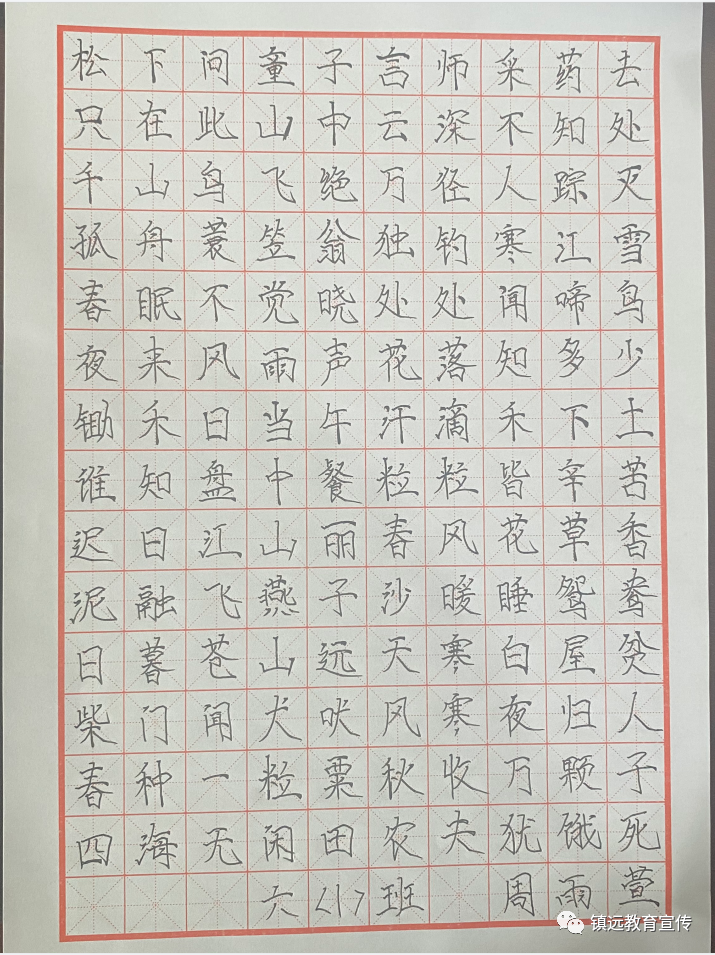 松下问童子言师采药去
只在此山中云深不知处
千山鸟飞绝万径人踪灭
孤舟蓑笠翁独钓寒江雪
春眠不觉晓处处闻啼鸟
夜来风雨声花落知多少
锄禾日当午汗滴禾下土
谁知盘中餐粒粒皆辛苦
迟日江山丽春风花草香
泥融飞燕子沙暖睡鸳鸯
日暮苍山远天寒白屋贫
柴门闻犬吠风寒夜归人
春种一粒粟秋收万颗子
四海无闲田农夫犹饿死
六〈1〉班 周雨萱
镇远教育宣传